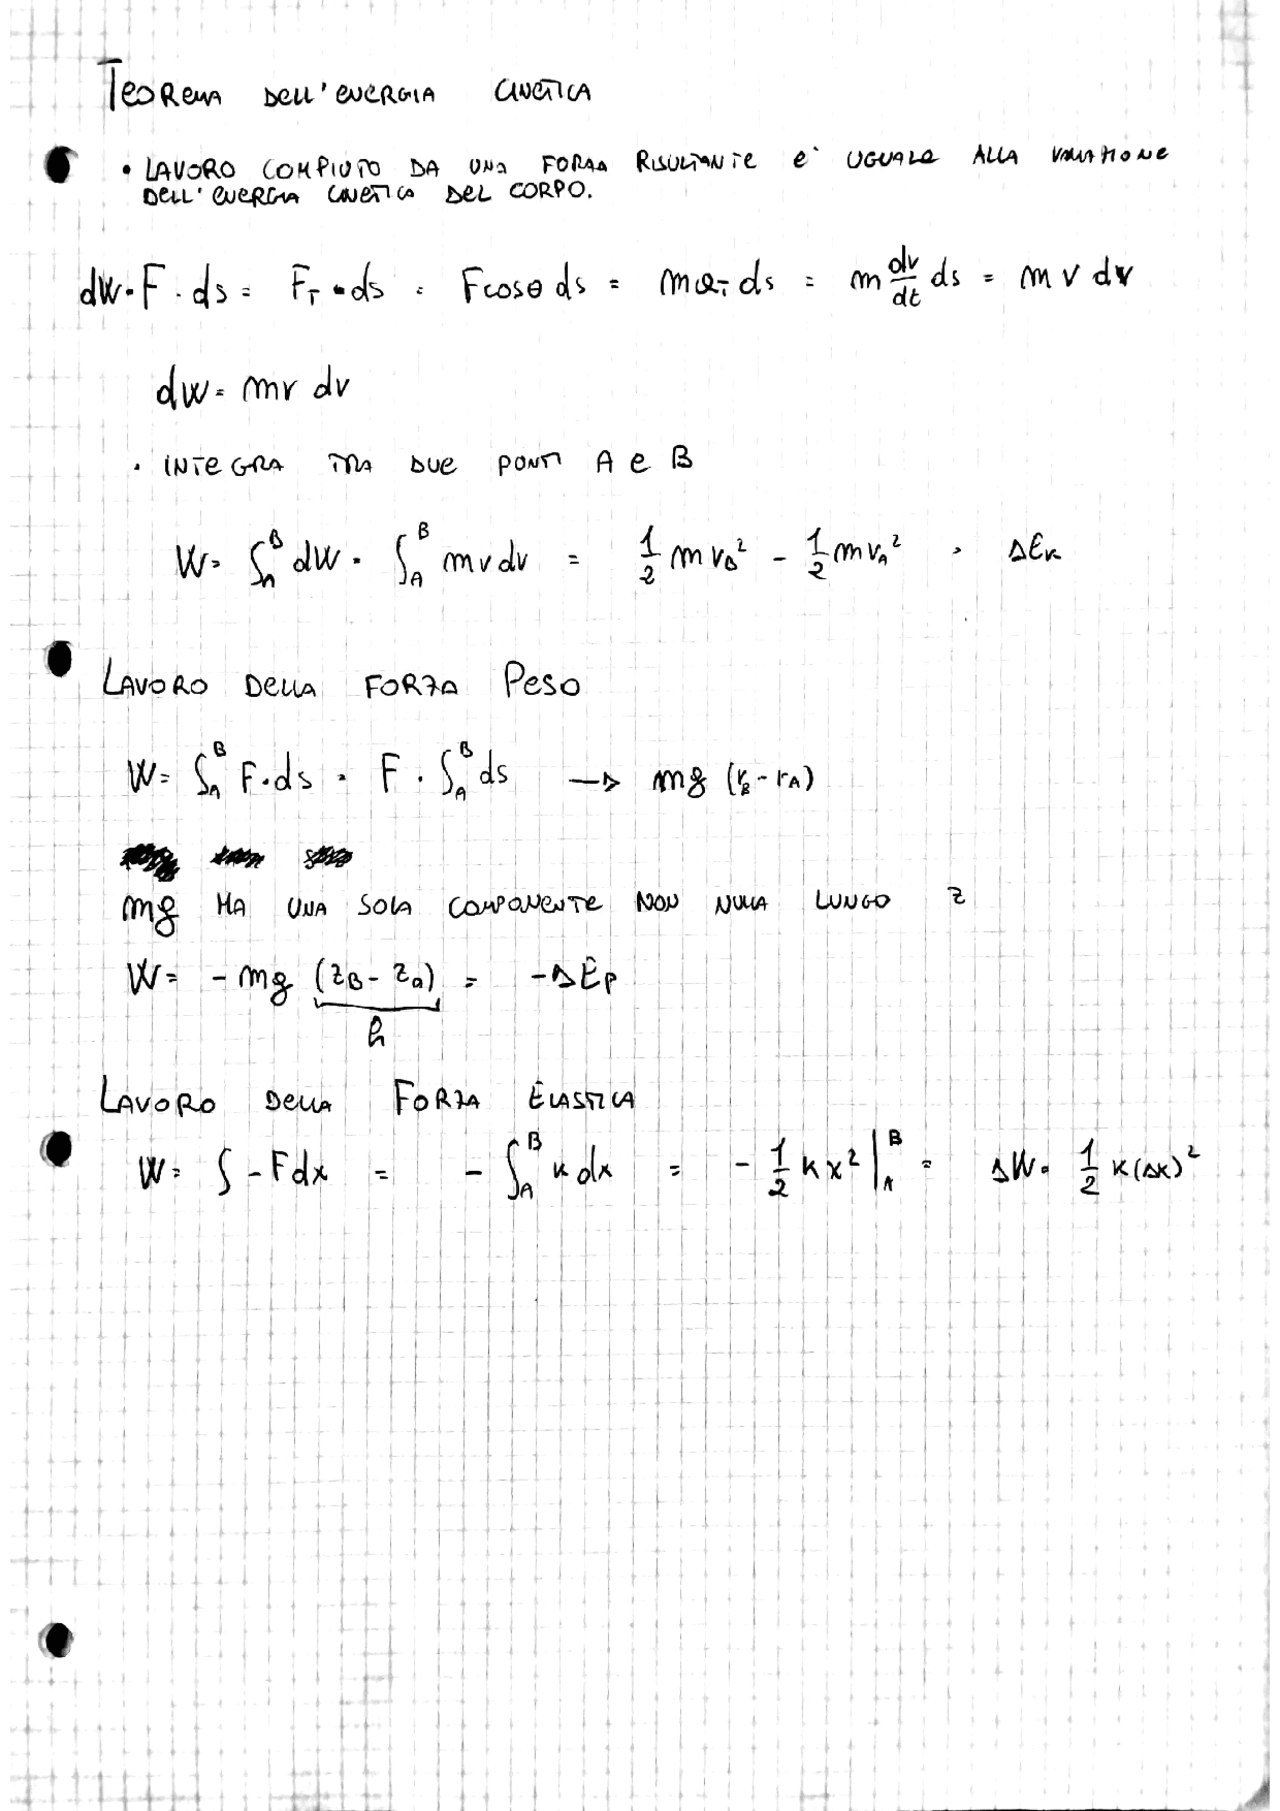 TEOREMA DELL'ENERGIA CINETICA
• LAVORO COMPIUTO DA UNA FORZA RISULTANTE E' UGUALE ALLA VARIAZIONE
DELL'ENERGIA CINETICA DEL CORPO.
dW = F · ds = F_T · ds = F cos θ ds = m a_T ds = m dv/dt ds = m v dv
dW = mv dv
• INTEGRA TRA DUE PONTI A e B
W = ∫_A^B dW = ∫_A^B mv dv = 1/2 m v_B² - 1/2 m v_A² = ΔE_K
LAVORO DELLA FORZA PESO
W = ∫_A^B F · ds = F · ∫_A^B ds → mg (r_B - r_A)
mg HA UNA SOLA COMPONENTE NON NULLA LUNGO Z
W = - mg (z_B - z_A) = -ΔE_P
h
LAVORO DELLA FORZA ELASTICA
W = ∫ - F dx = - ∫_A^B k dx = - 1/2 k x² |_A^B = ΔW = 1/2 k (Δx)²